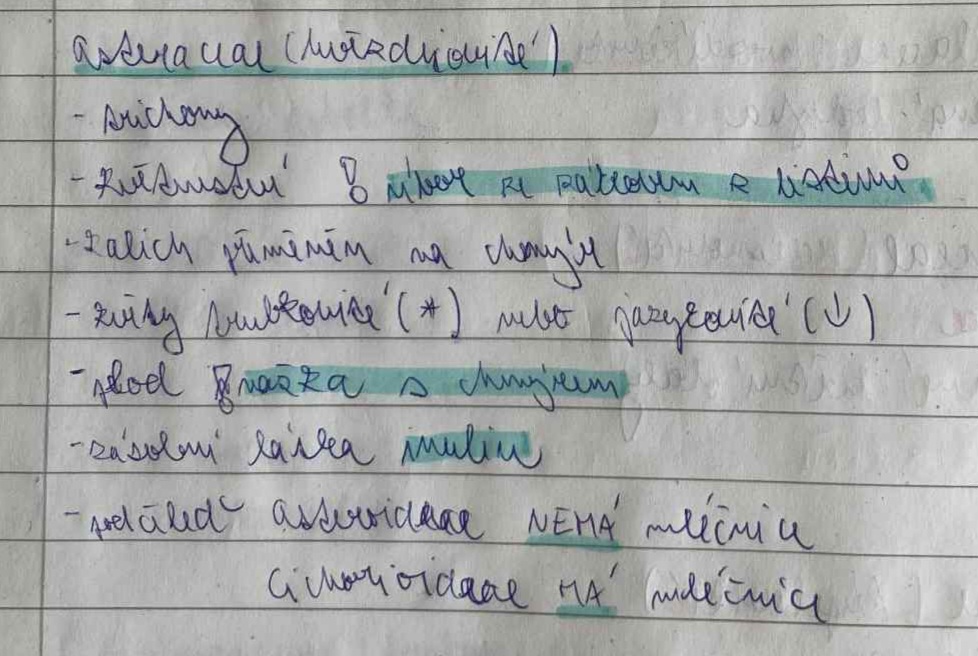 asteraceae (hvězdnicovité)
- trichomy
- květenství ! úbor se zákrovem z listenů
- kalich přeměněn na chmýr
- květy trubkovité (*) nebo jazykovité (↓)
- plod ! nažka s chmýrem
- zásobní látka inulin
- podčeleď asteroideae NEMÁ mléčnice
cichorioideae MÁ mléčnice